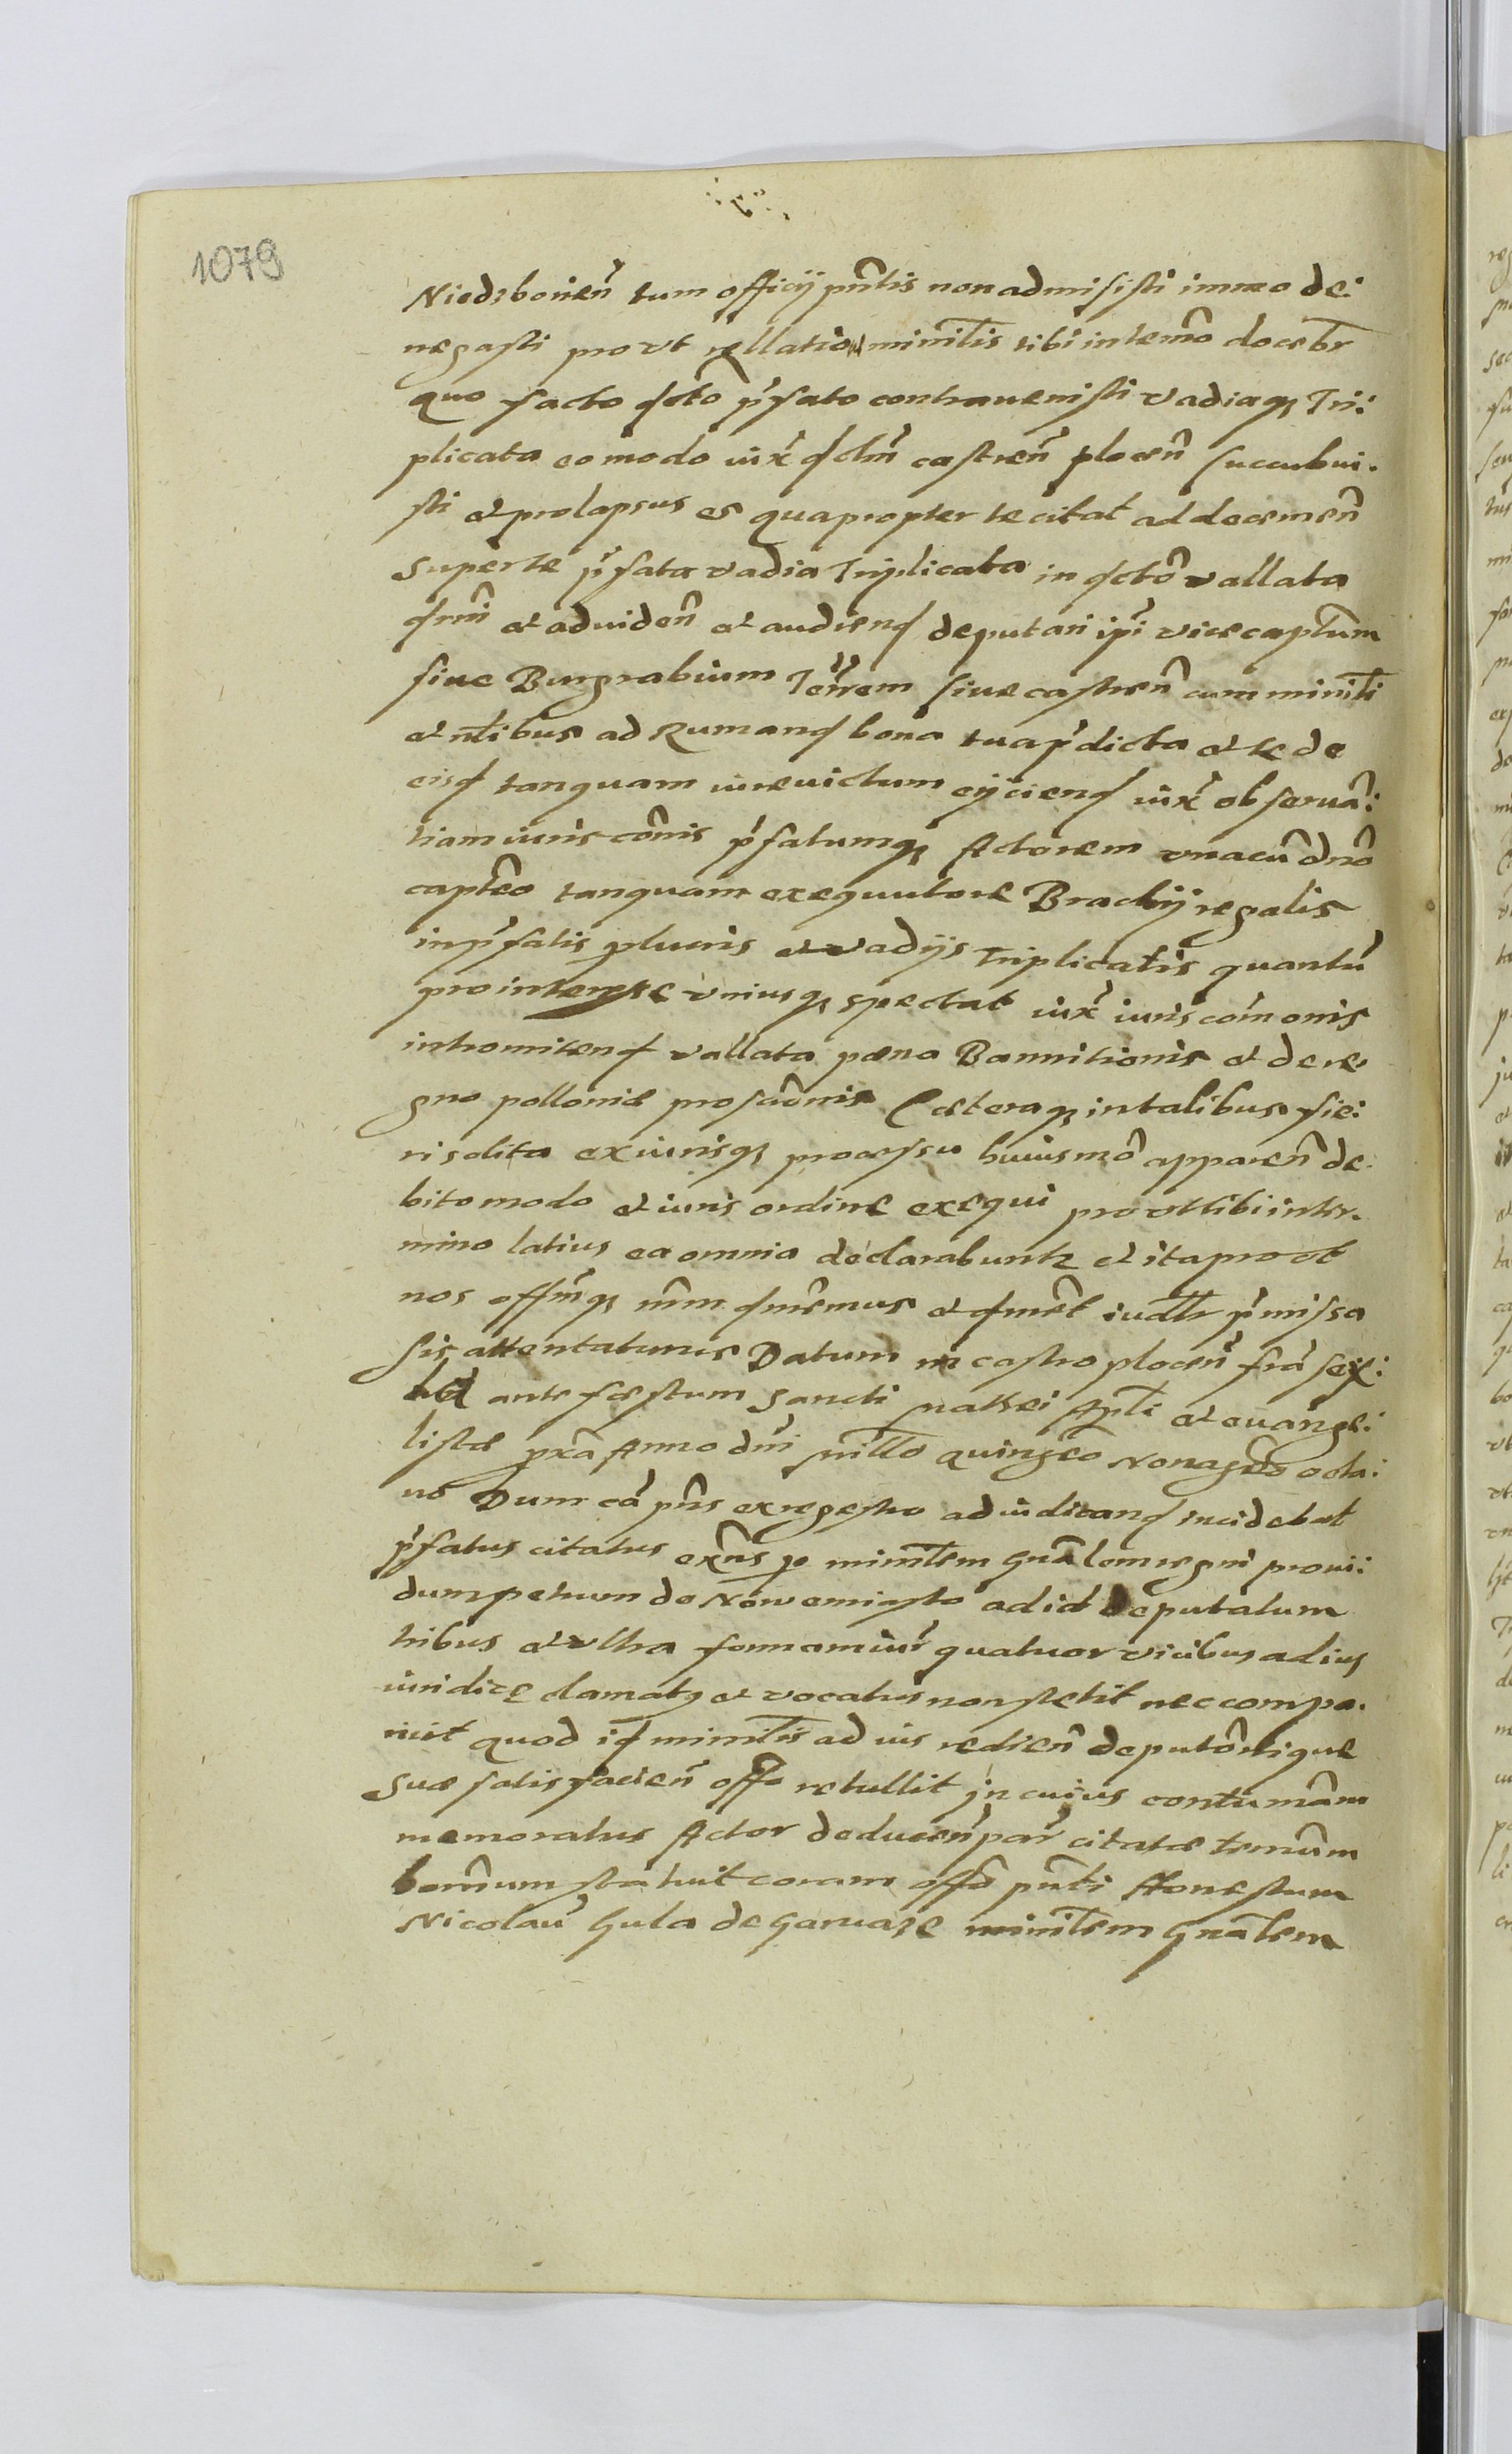 1079
Niedzbonen̄ tum officij pn̄tis non admisisti immo de:
negasti prout rellatio minr̄lis tibi in termō docebr̄
quo facto dctō p̄fato contravenisti vadiaqȝ Tri:
plicata eo modo iux̄ dctm̄ castren̄ plocen̄ succubui.
sti et prolapsus es quapropter te citat ad decernen̄
super te p̄fata vadia Triplicata in dctō vallata
et ad viden̄ et audiend deputari ip̄i vicecaptm̄
siue Burgrabium Terr̄em siue castren̄ cum minrl̄i
et nl̄ibus ad Rumand bona tua p̄dicta et te de
eisd tanquam iure victum eijciend iux̄ observā:
tiam iuris com̄is p̄fatumqȝ Actorem vnacū dn̄o
captēo tanquam exequutore Brachij regalis
in p̄fatis et vadijs Triplicatis quantū
pro interesse vniusqȝ spectat iux̄ iuris com̄onis
intromitend vallata pæna Bannitionis et de re.
gno polloniæ Cæteraqȝ in talibus fie:
ri solita ex iurisqȝ processu huiusmō apparen̄ de.
bito modo et iuris ordine exequi prout tibi in ter.
mino latius ea omnia declarabuntr et ita prout
nos offm̄qȝ nr̄m p̄missa
sis attentaturus Datum in castro plocen̄ fr̄a sex:
ta ante fæstum Sancti Matthei Apl̄i et euange:
listæ px̄a Anno dn̄i mill̄o quingēo Nonagēo octa:
uo Dum cā pn̄s ex regestro ad iudicand incidebat
p̄fatus citatus per minr̄lem gnālem regni proui:
dum petrum de Nowemiasto ad id deputatum
tribus et vltra formam iur̄ quatuor vicibus ad ius
iuridice clamatȝ et vocatus non stetit nec compa.
ruit quod id minr̄lis ad ius redien̄ deputōnique
suæ satisfacien̄ offō retullit in cuius contumām
memoratus Actor deducen̄ par̄ citatæ termm̄
statuit coram offō pn̄ti Honestum
Nicolaū Gula de Garwaze minr̄lem gnālem